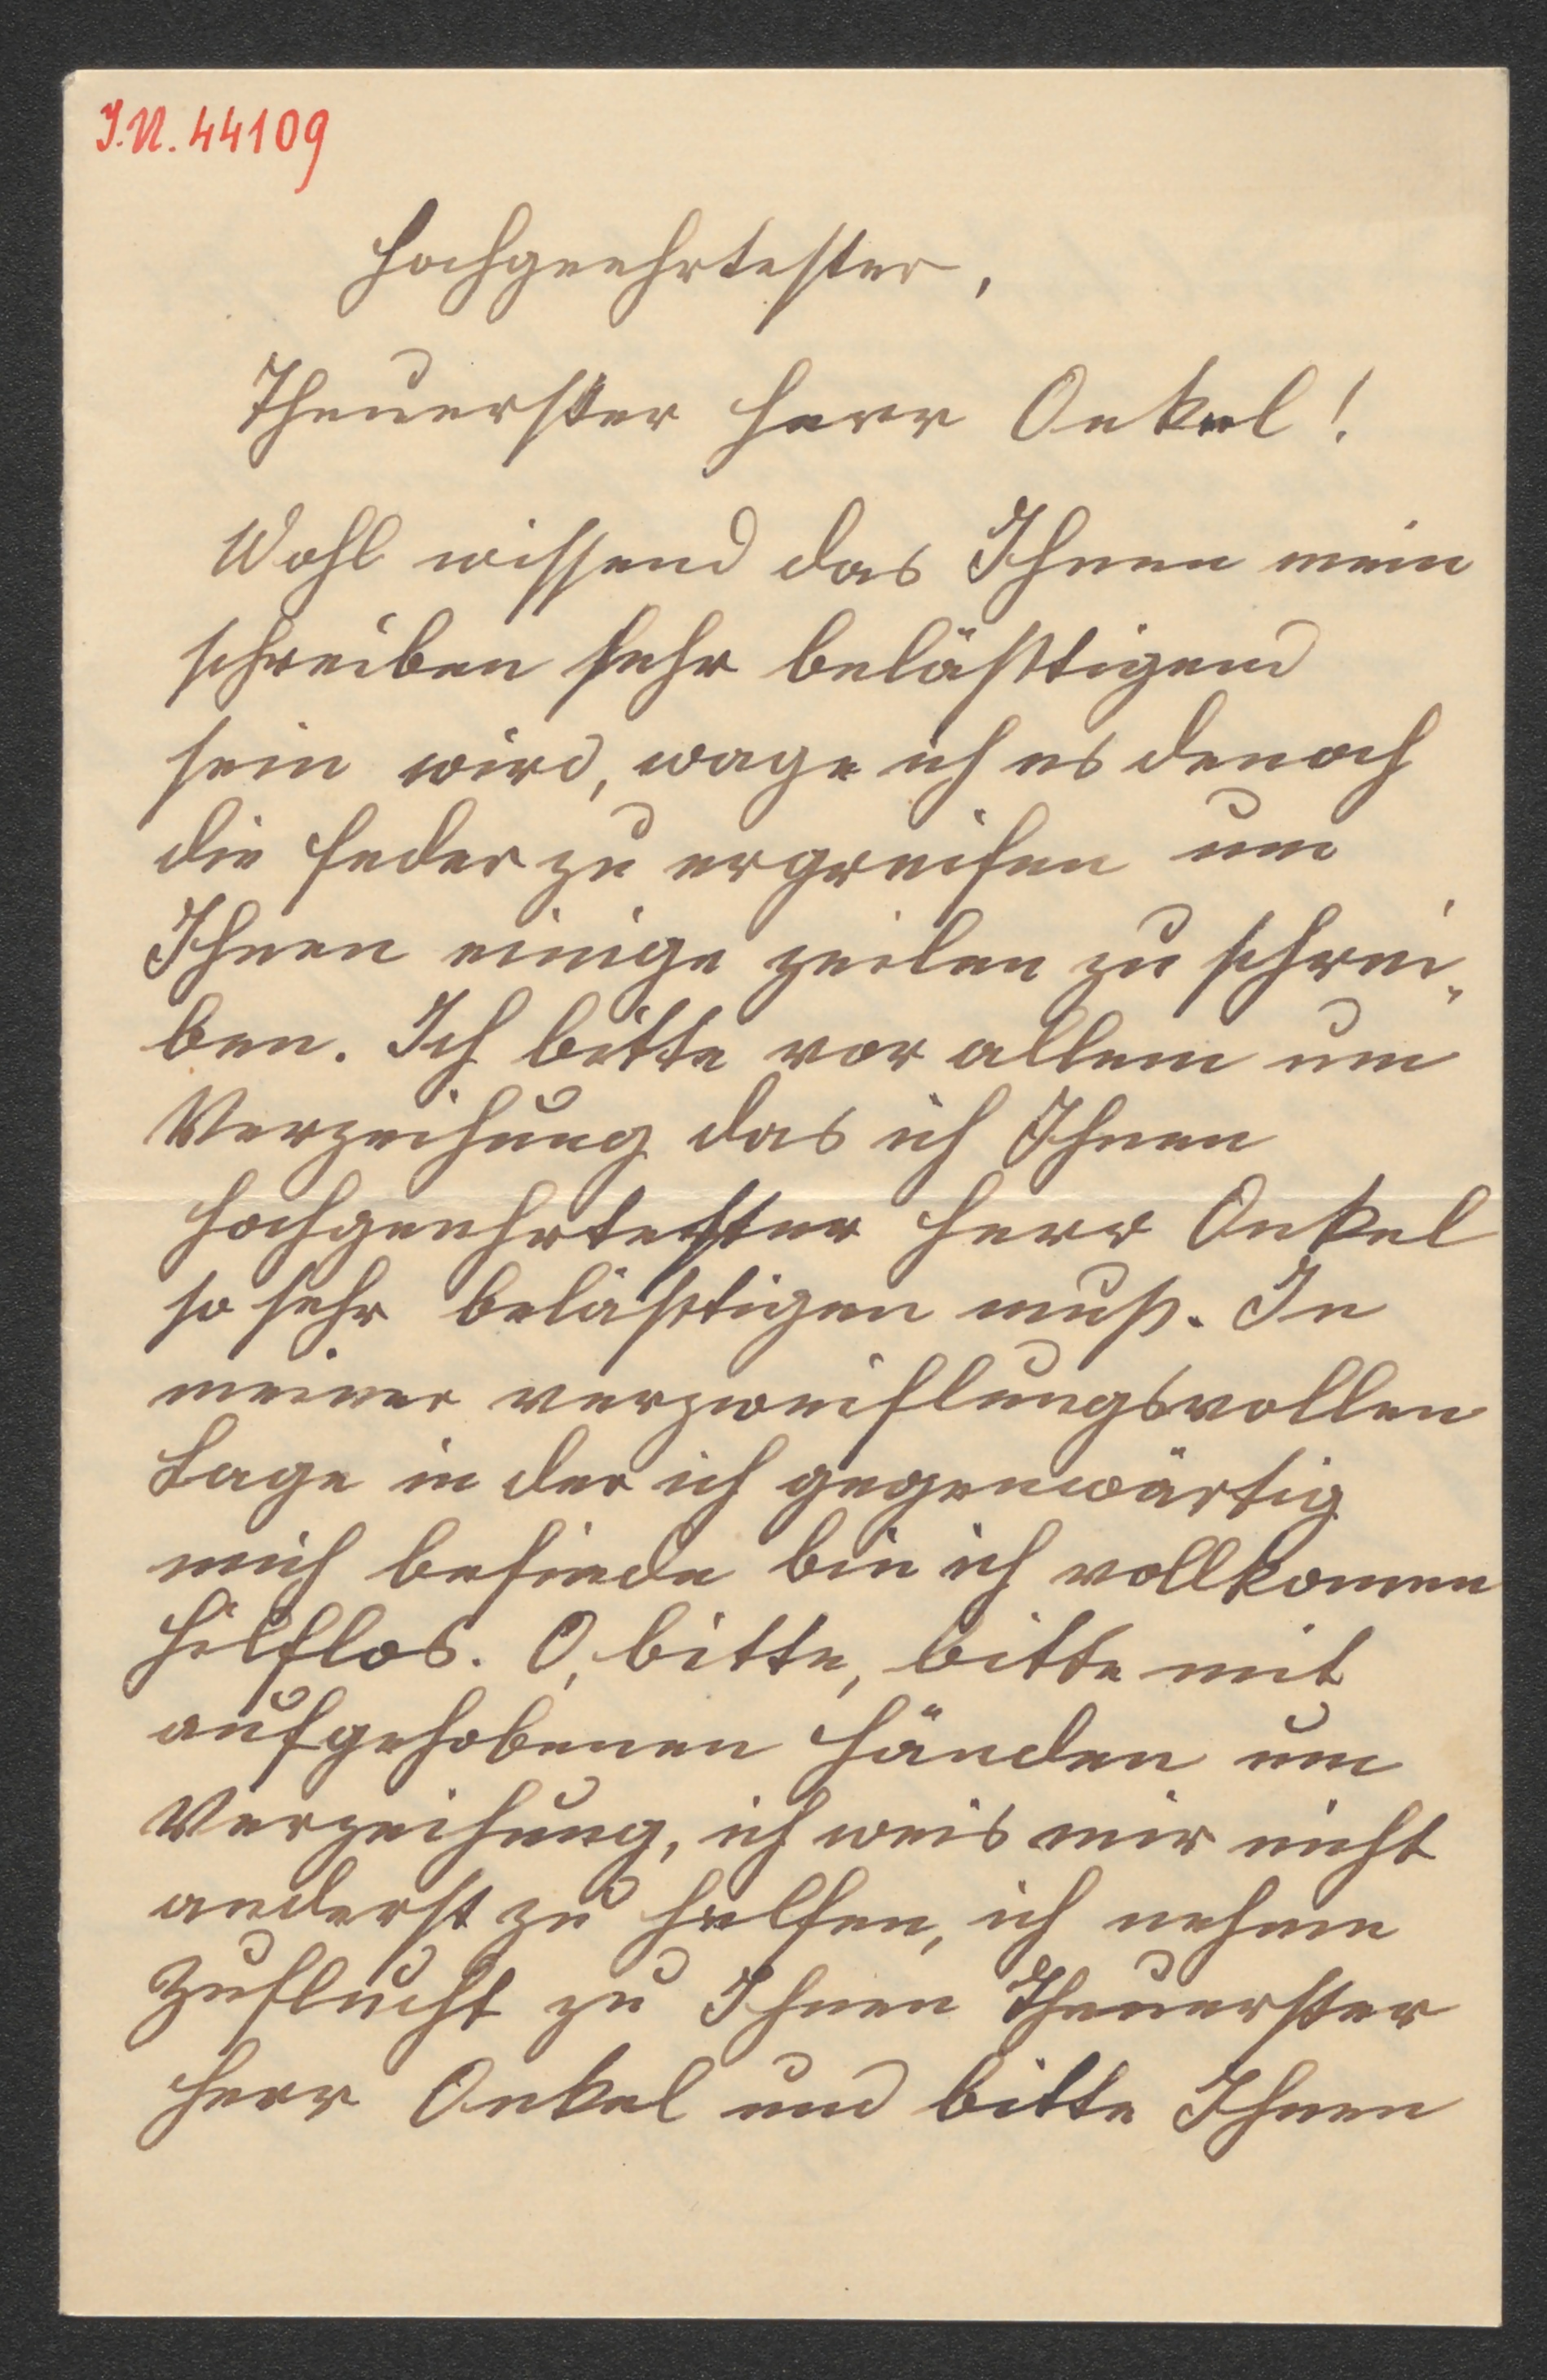 J.N. 44109
Hochgeehrtester,
Theuerster Herr Onkel!
Wohl wissend das Ihnen mein
schreiben sehr beläßtigend
sein wird, wage ich es denoch
die Feder zu ergreifen um
Ihnen einige zeilen zu schrei„
ben. Ich bitte vor allem um
Verzeihung das ich Ihnen
Hochgeehrtester Herr Onkel
so sehr beläßtigen muß. In
meiner verzweiflungsvollen
Lage in der ich gegenwärtig
mich befinde bin ich vollkomen
hilflos. O, bitte, bitte mit
aufgehobenen Händen um
Verzeihung, ich weis mir nicht
anderst zu helfen, ich nehme
Zuflucht zu Ihnen Theuerster
Herr Onkel und bitte Ihnen